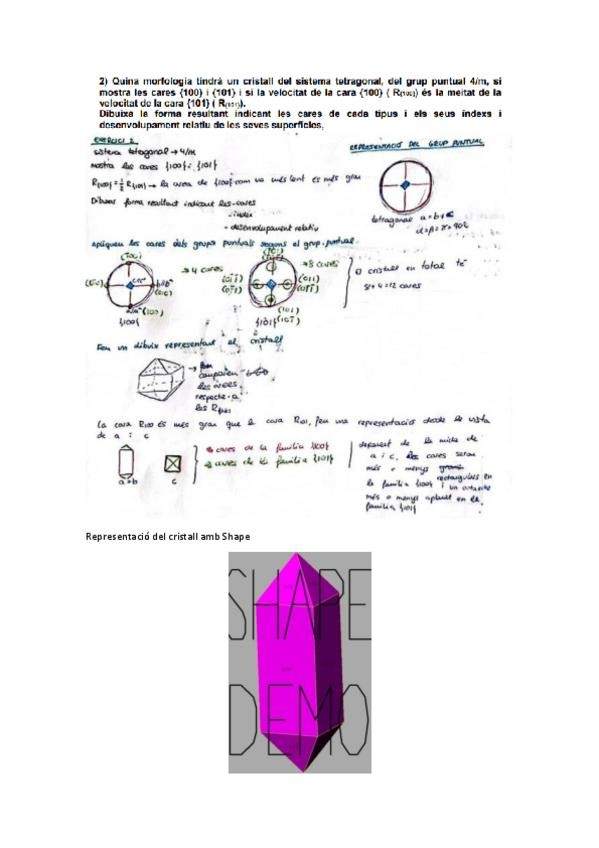 2) Quina morfologia tindrà un cristall del sistema tetragonal, del grup puntual 4/m, si
mostra les cares {100} i {101} i si la velocitat de la cara {100} ( R(100)) és la meitat de la
velocitat de la cara {101} ( R(101)).
Dibuixa la forma resultant indicant les cares de cada tipus i els seus índexs i
desenvolupament relatiu de les seves superfícies,
EXERCICI 2
REPRESENTACIÓ DEL GRUP PUNTUAL
sistema tetragonal → 4/m
mostra les cares {100} i {101}
R{100} = 1/2 R{101} → la area de {100} com va més lent és més gran
Dibuixa forma resultant indicant les cares
- índex
- desenvolupament relatiu
tetragonal a=b≠c
α=β=γ=90º
apliquem les cares dels grups puntuals segons el grup puntual
→ 4 cares
→ 8 cares
(010)
(100)
{100}
(011)
(101)
{101}
El cristall en total té
8+4=12 cares
Fem un dibuix representant el cristall
les àrees
respecte a
les
la cara R100 és més gran que la cara R101, fem una representació desde la vista
de a i c
a=b
c
4 cares de la família {100}
8 cares de la família {101}
depenent de la mida de
a i c, les cares seran
més o menys
rectangulars en
la família {100} i un octaedre
més o menys aplanat en la
família {101}
Representació del cristall amb Shape
SHAPE
DEMO